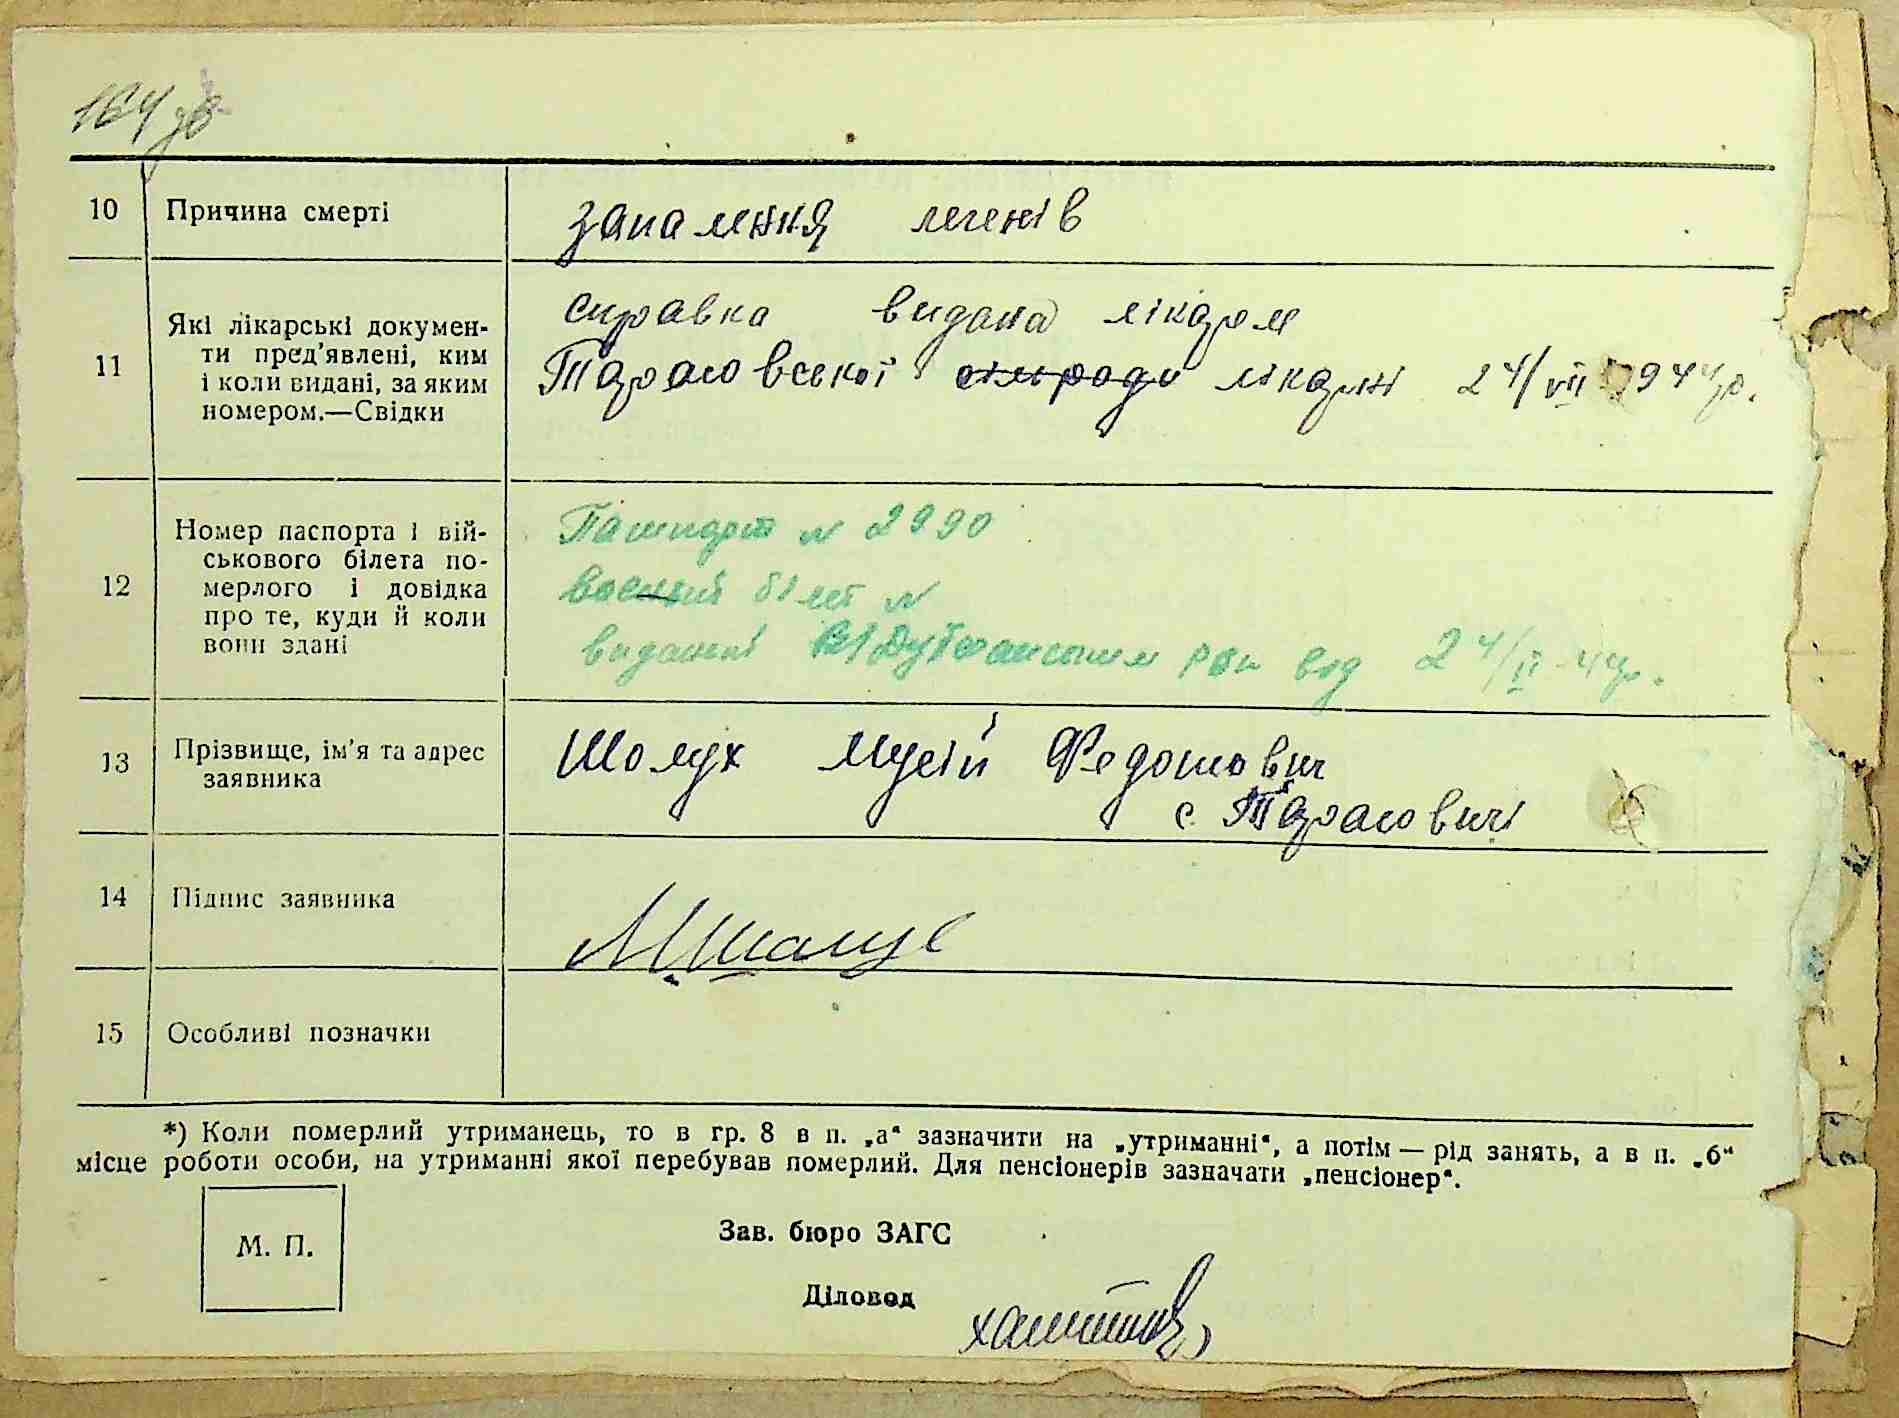 164 зв
10 Причина смерті запалення легенів
11 Які лікарські докумен-
ти пред'явлені, ким
і коли видані, за яким
номером.—Свідки
справка видана лікаром
Тарасоввської сільради лікарні 24/VII 1944 р.
12 Номер паспорта і вій-
ськового білета по-
мерлого і довідка
про те, куди й коли
вони здані
Пашпорт № 2990
воєний білет №
виданий рай від 24/II-44р.
13 Прізвище, ім'я та адрес
заявника
Шолух Мусій Федотович
с. Тарасовичі
14 Підпис заявника
15 Особливі позначки
*) Коли померлий утриманець, то в гр. 8 в п. „а“ зазначити на „утриманні“, а потім — рід занять, а в п. „б“
місце роботи особи, на утриманні якої перебував померлий. Для пенсіонерів зазначати „пенсіонер“.
М. П.
Зав. бюро ЗАГС
Діловод